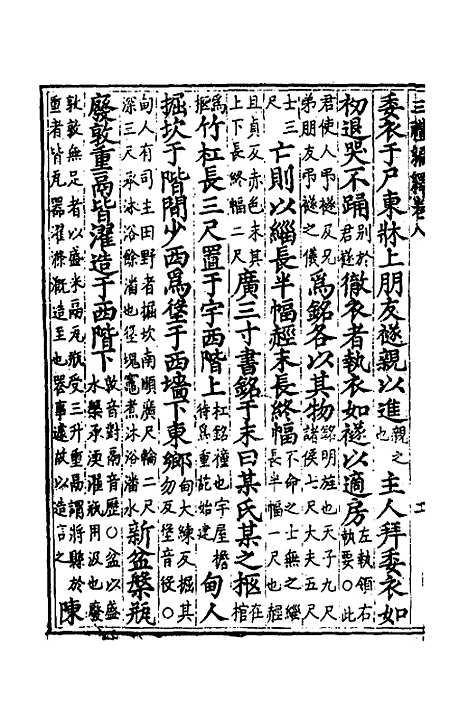 三禮編繹卷八
委衣于尸東牀上朋友襚親以進親之也主人拜委衣如
初退哭不踊別於君襚徹衣者執衣如襚以適房左執領右執要○此
君使人弔襚及兄弟朋友弔襚之儀為銘各以其物銘明旌也天子九尺諸侯七尺大夫五尺
士三尺亡則以緇長半幅䞓末長終幅不命之士無之緇長半幅一尺也䞓
且貞反赤色末其上下長終幅二尺廣三寸書銘于末曰某氏某之柩在棺
為柩竹杠長三尺置于宇西階上杠銘橦也宇屋檐待為重訖始建甸人
掘坎于階間少西為垼于西墻下東鄉甸大練反掘其勿反垼音役○
甸人有司主田野者掘坎南順廣尺輪二尺深三尺承沐浴餘潘也垼塊竈煮沐浴潘水新盆槃瓶
廢敦重鬲皆濯造于西階下敦音對鬲音歷○盆以盛水槃承渜濯瓶用汲也廢
敦敦無足者以盛米鬲瓦瓶受三升重鬲謂將縣於重者皆瓦器濯滌溉造至也器事遽故以造言之陳